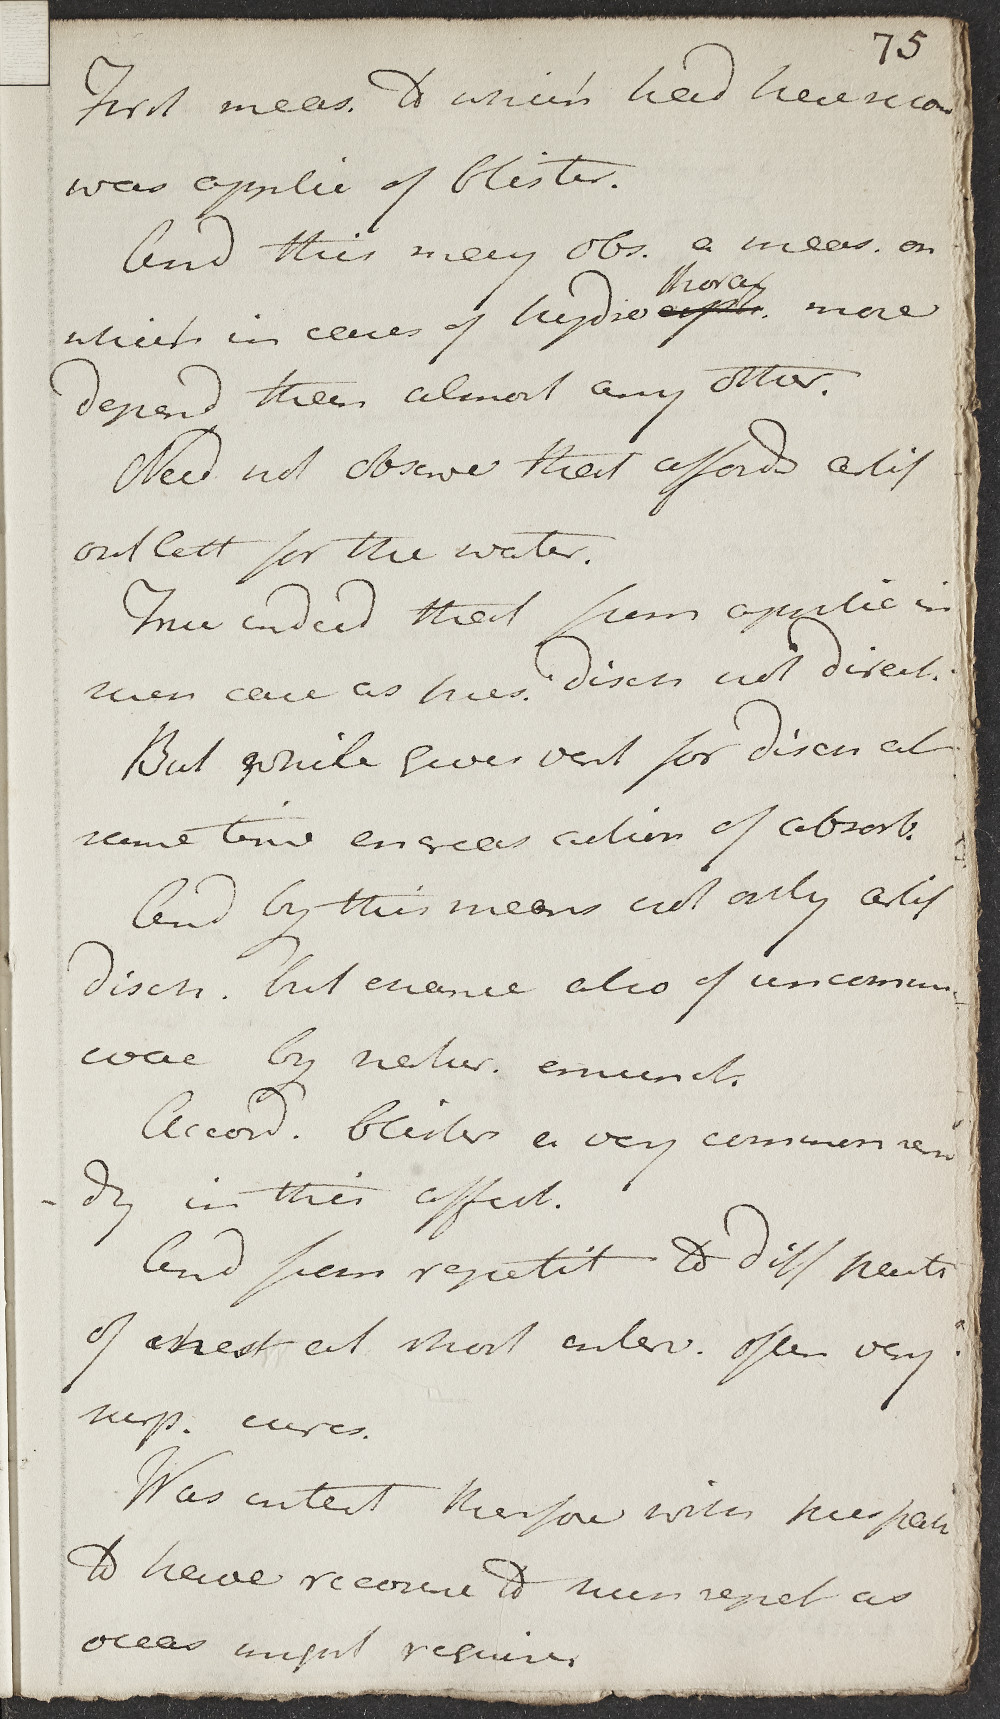 75
First meas. to which had here recou
was applic of blister.
And this may obs. a meas. on
thorax
which in cases of hydrocepha. more
depend than almost any other.
Need not observe that affords artif
outlett for the water.
True indeed that from applic in
such case as pres. disch not direct.
But while gives vent for disch at
same time encreas action of absorb.
And by this means not only artif
disch. but chance also of uncommon
evac by natur. emunct.
Accord. blisters a very common rem
dy in this affect.
And from repetit to diff parts
of chest at short interv. often very
surp. cures.
Was intent therefore with pres patt
to have recourse to such repet as
occas might require.